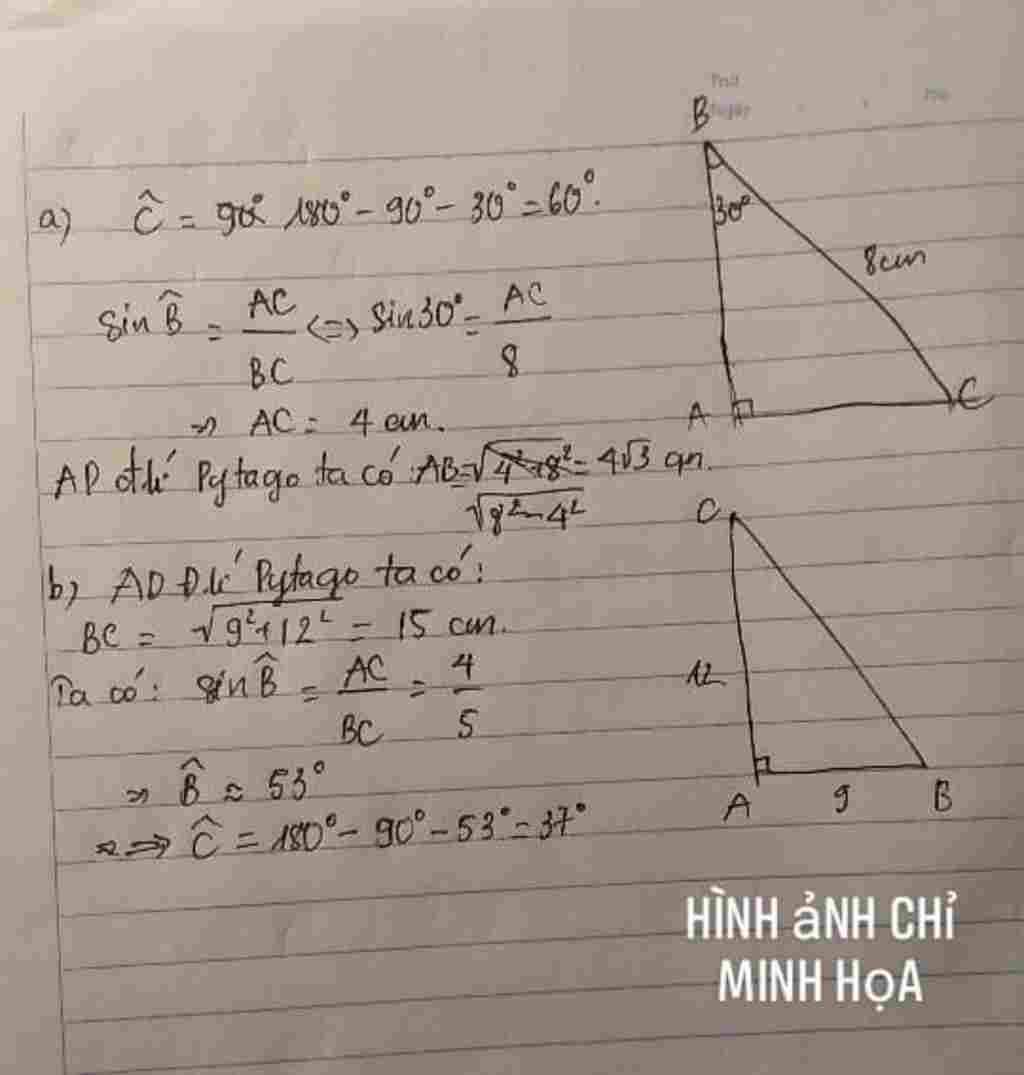 Thứ
Ngày
No.
a) Ĉ = 90° 180° - 90° - 30° = 60°.
sin B̂ = AC/BC <=> sin30° = AC/8
=> AC = 4 cm.
AD đ.lí Pytago ta có: AB = √4²+8² = 4√3 cm.
√8²-4²
b) AD Đ.lí Pytago ta có:
BC = √9²+12² = 15 cm.
Ta có: sin B̂ = AC/BC = 4/5
=> B̂ ≈ 53°
=> Ĉ = 180° - 90° - 53° = 37°
B
30°
8cm
A
C
C
12
A
9
B
HÌNH ảNH CHỈ
MINH HọA